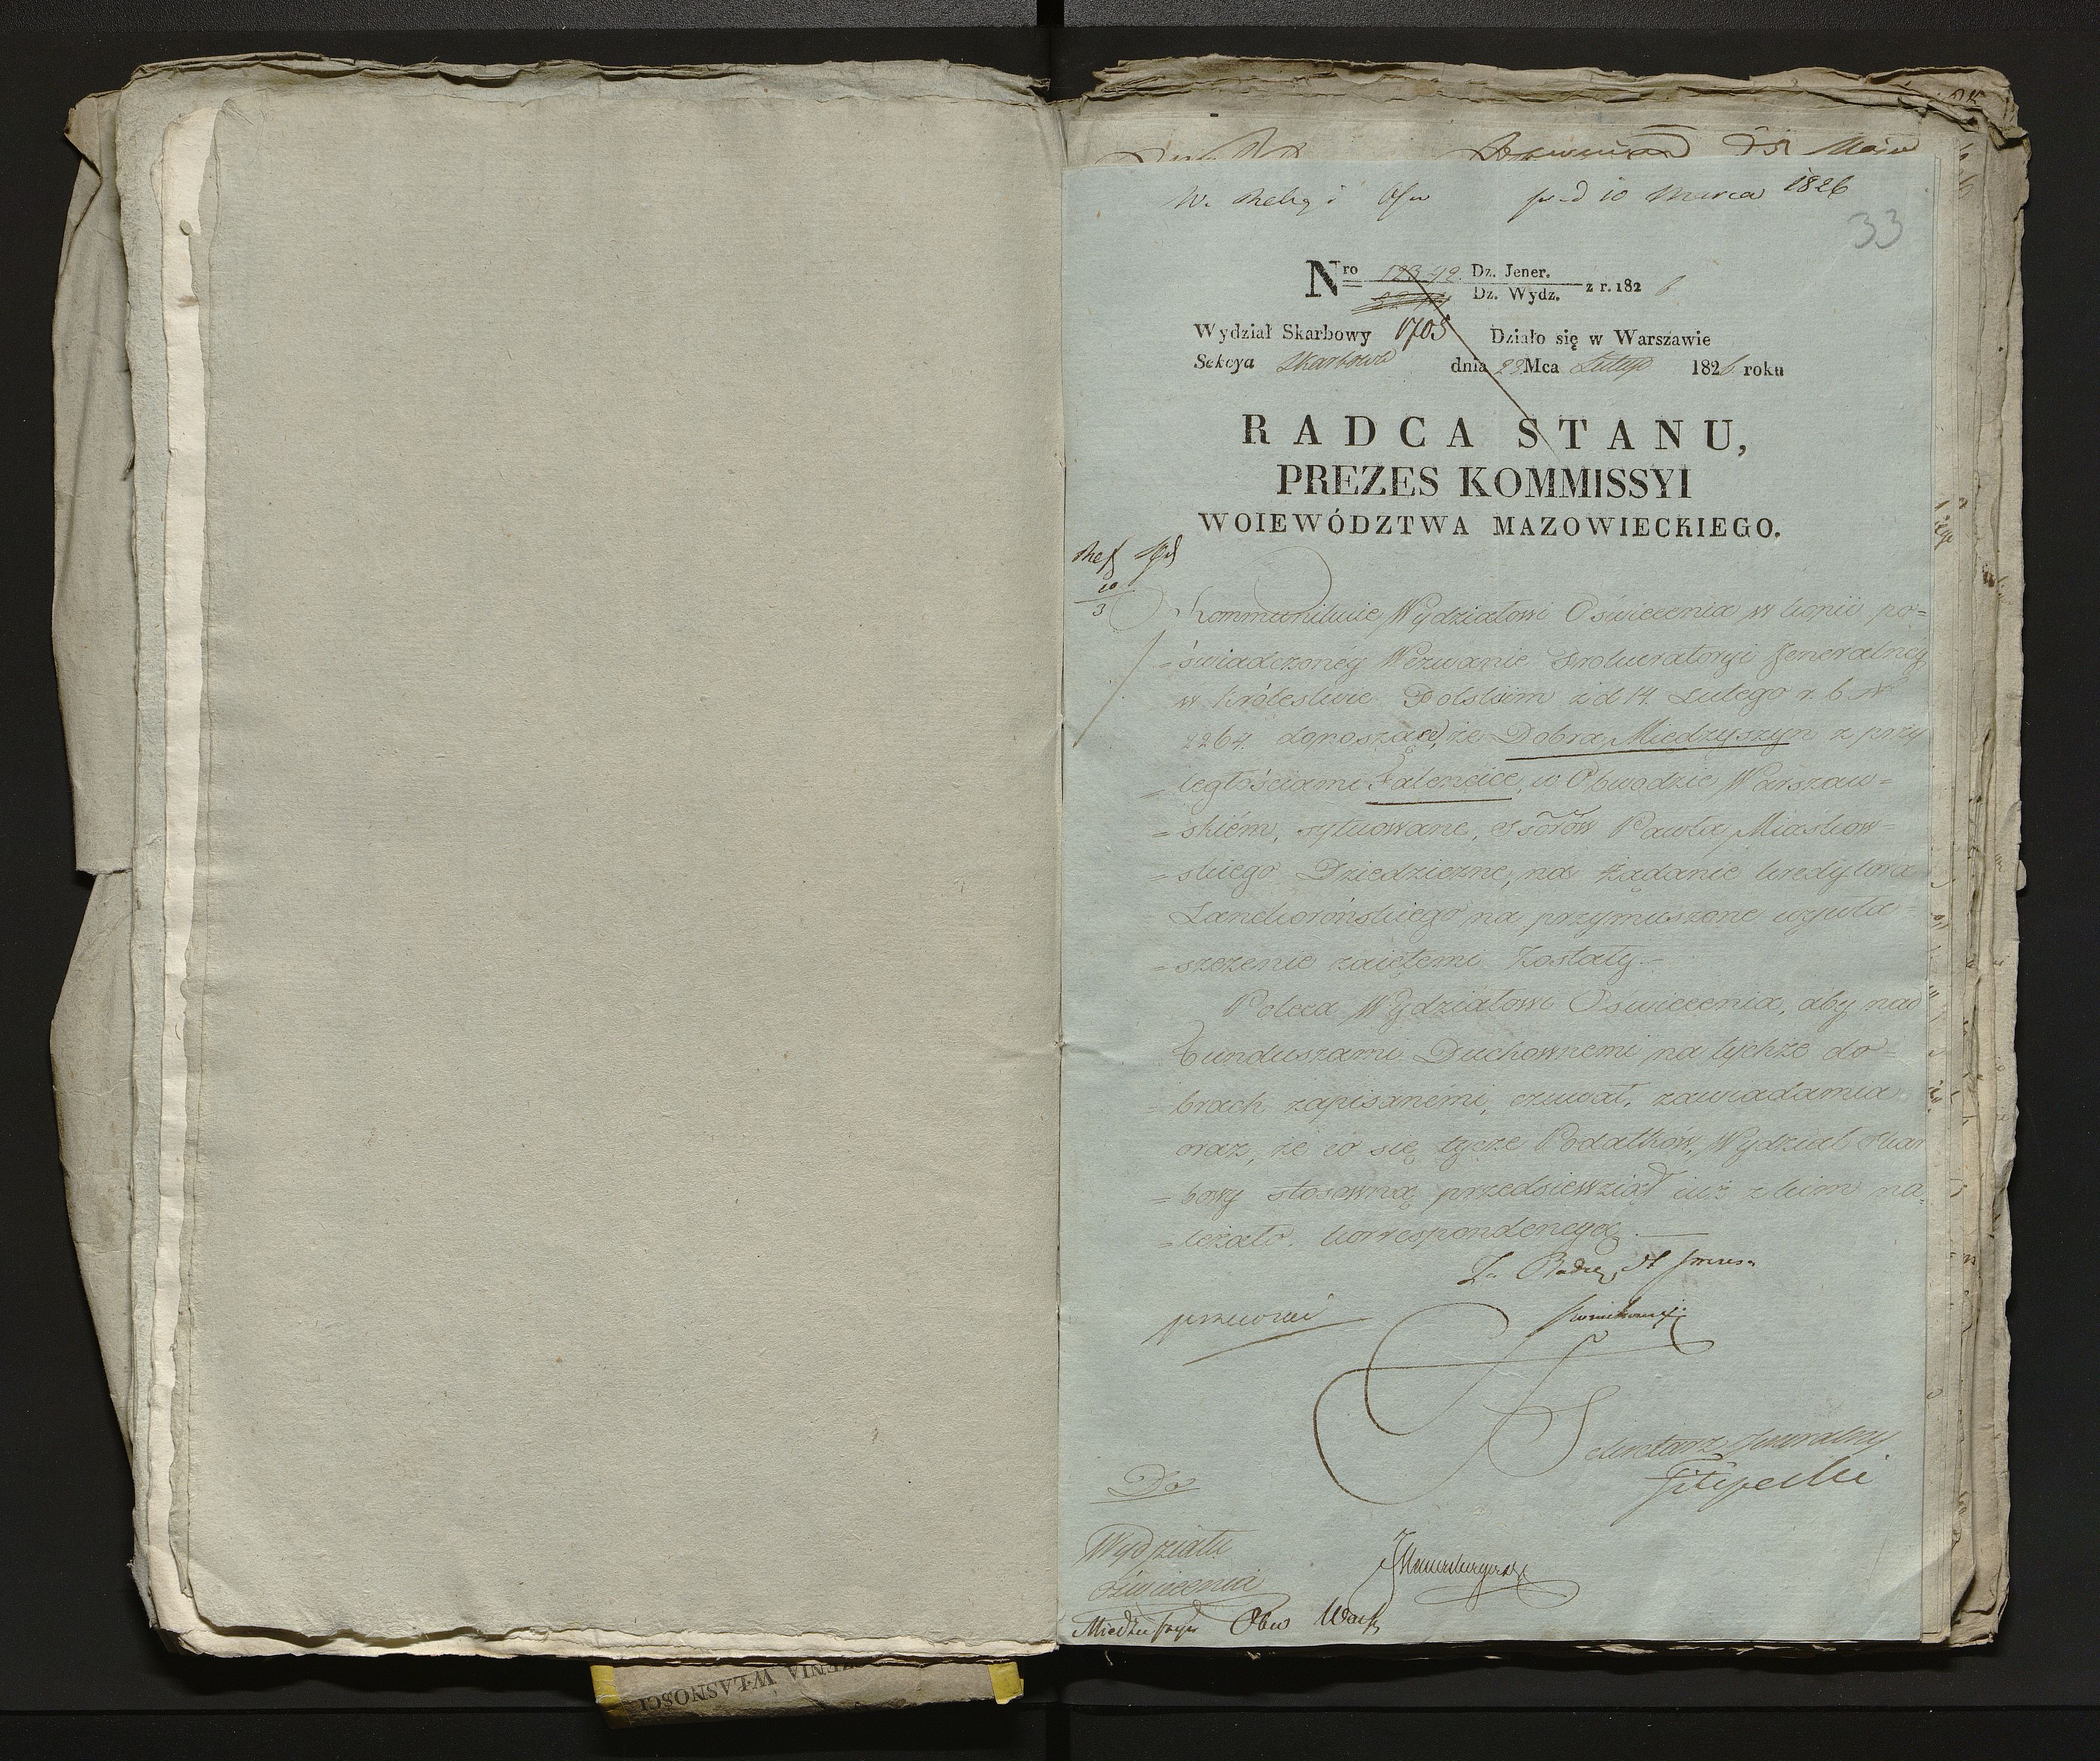 W. Relig i Ośw pr. d 10 Marca 1826
33
Nro 12372. Dz. Jener.
Dz. Wydz. z r. 1826
Wydział Skarbowy 1705 Działo się w Warszawie
Sekcya Skarbowa dnia 22 Mca Lutego 1826 roku
RADCA STANU,
PREZES KOMMISSYI
WOIEWÓDZTWA MAZOWIECKIEGO.
10
3
Kommunikuie Wydziałowi Oświecenia w kopii po=
=świadczonéy Wezwanie Prokuratoryi Jeneralnéy
w Królestwie Polskim z d 14. Lutego r. b. N
2264. donosząc, że Dobra Miedzyszyn z przy
=ległościami Falencice, w Obwodzie Warszaw=
=skiém, sytuowane, Ssorów Pawła Miaskow=
=skiego Dziedziczne, na żądanie kredytora
Lanckorońskiego na przymuszone wywła=
=szczenie zaiętemi zostały.–
Poleca Wydziałowi Oświecenia, aby nad
Funduszami Duchownemi na tychże do=
=brach zapisanémi, czuwał, zawiadamia
oraz, że co się tycze Podatków, Wydział Skar
=bowy stosowną przedsiewziął iuż z kim na=
=leżało. korrespondencyą.
Za Radcę St Prezesa
Sekretarz Jeneralny
Filipecki
Do
Wydziału
Oświecenia
Miedzeszyn Obw Warsz
WŁASNOŚCI